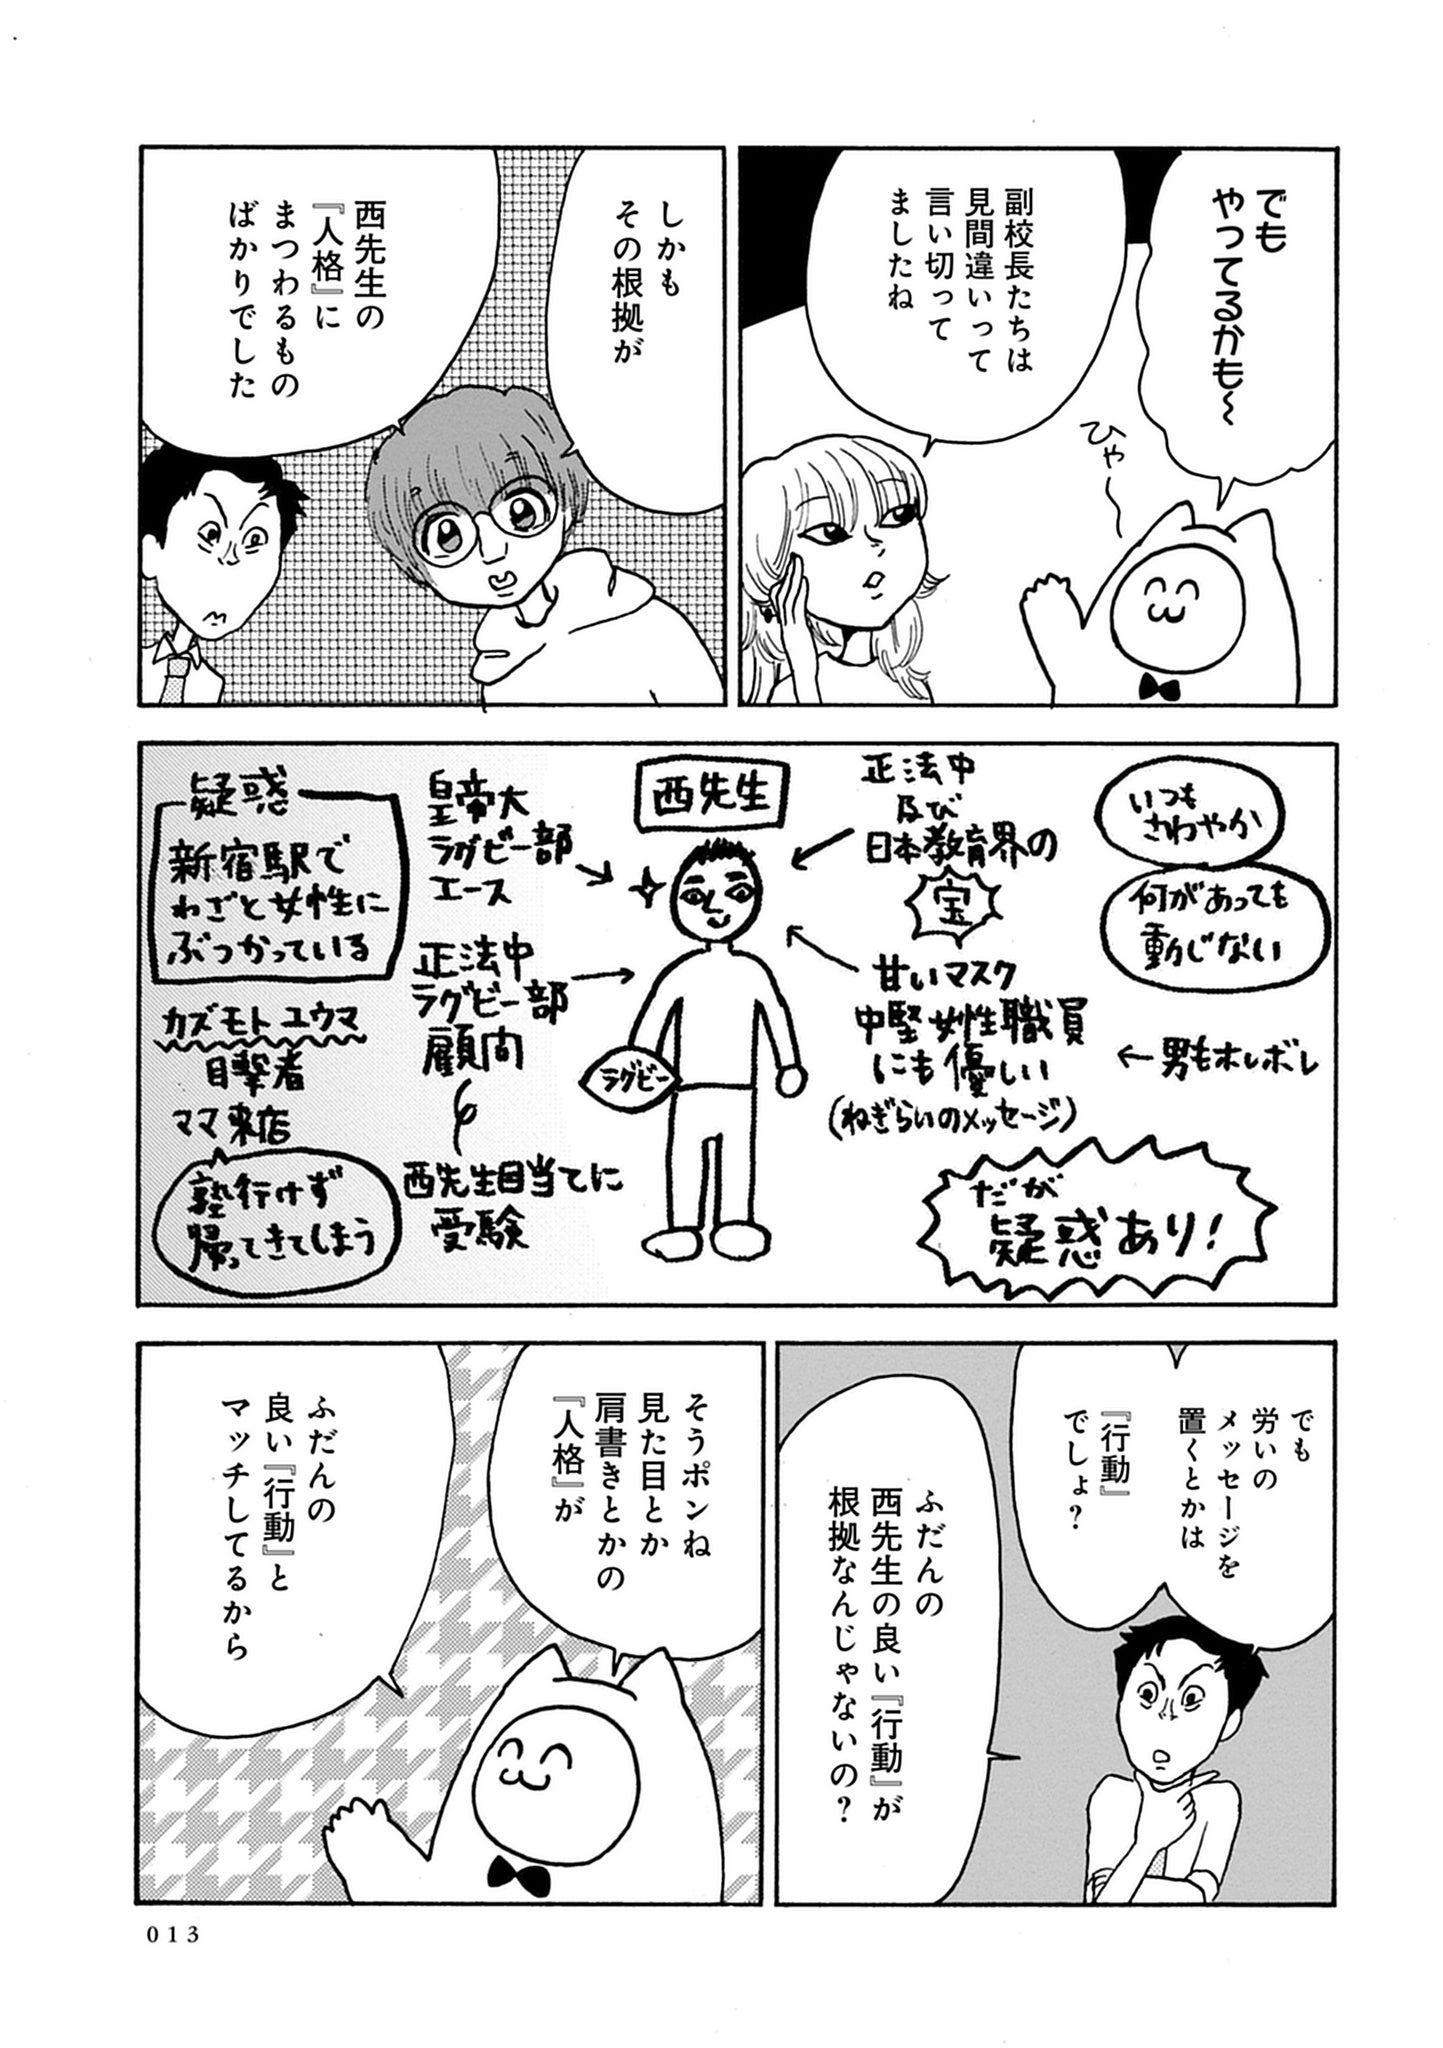 でも
やってるかも〜
ひゃ〜
副校長たちは
見間違いって
言い切って
ましたね
しかも
その根拠が
西先生の
『人格』に
まつわるもの
ばかりでした
いつも
さわやか
何があっても
動じない
正法中
及び
日本教育界の
宝
甘いマスク
中堅女性職員
にも優しい
(ねぎらいのメッセージ)
←男もホレボレ
だが
疑惑あり!
西先生
ラグビー
皇帝大
ラグビー部
エース
正法中
ラグビー部
顧問
西先生目当てに
受験
疑惑
新宿駅で
わざと女性に
ぶつかっている
カズモトユウマ
目撃者
ママ来店
塾行けず
帰ってきてしまう
でも
労いの
メッセージを
置くとかは
『行動』
でしょ?
ふだんの
西先生の良い『行動』が
根拠なんじゃないの?
そうポンね
見た目とか
肩書きとかの
『人格』が
ふだんの
良い『行動』と
マッチしてるから
013